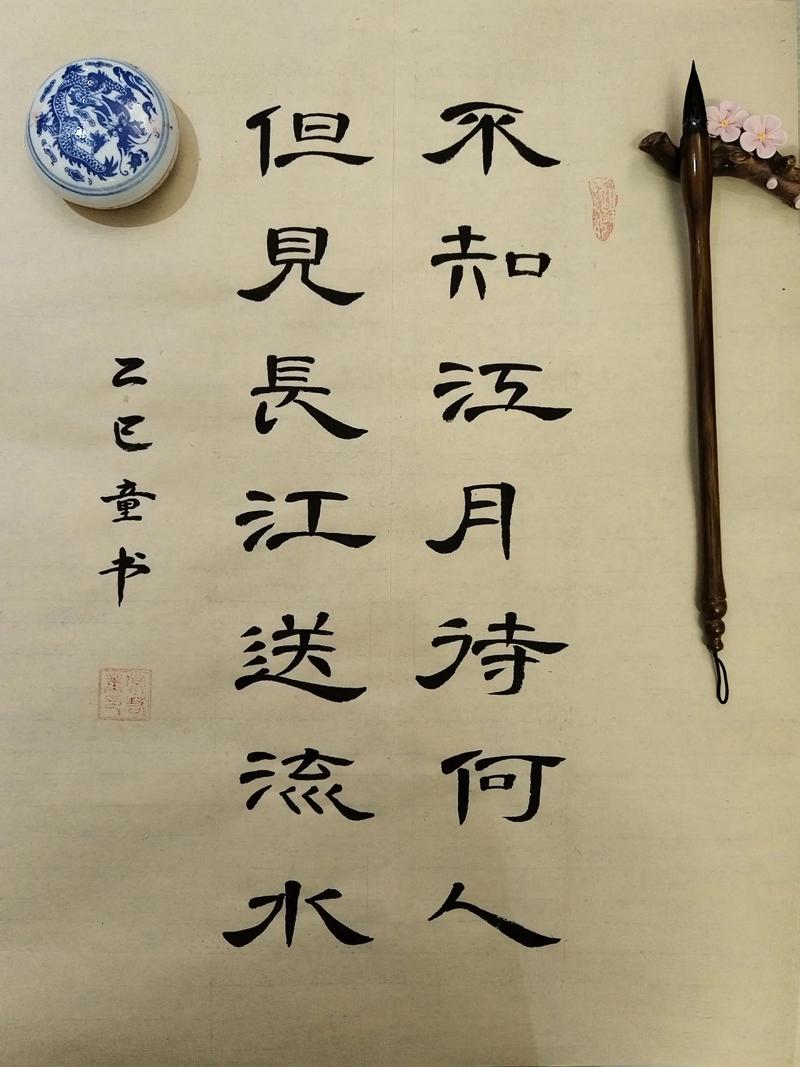 不知江月待何人
但見長江送流水
乙巳童书